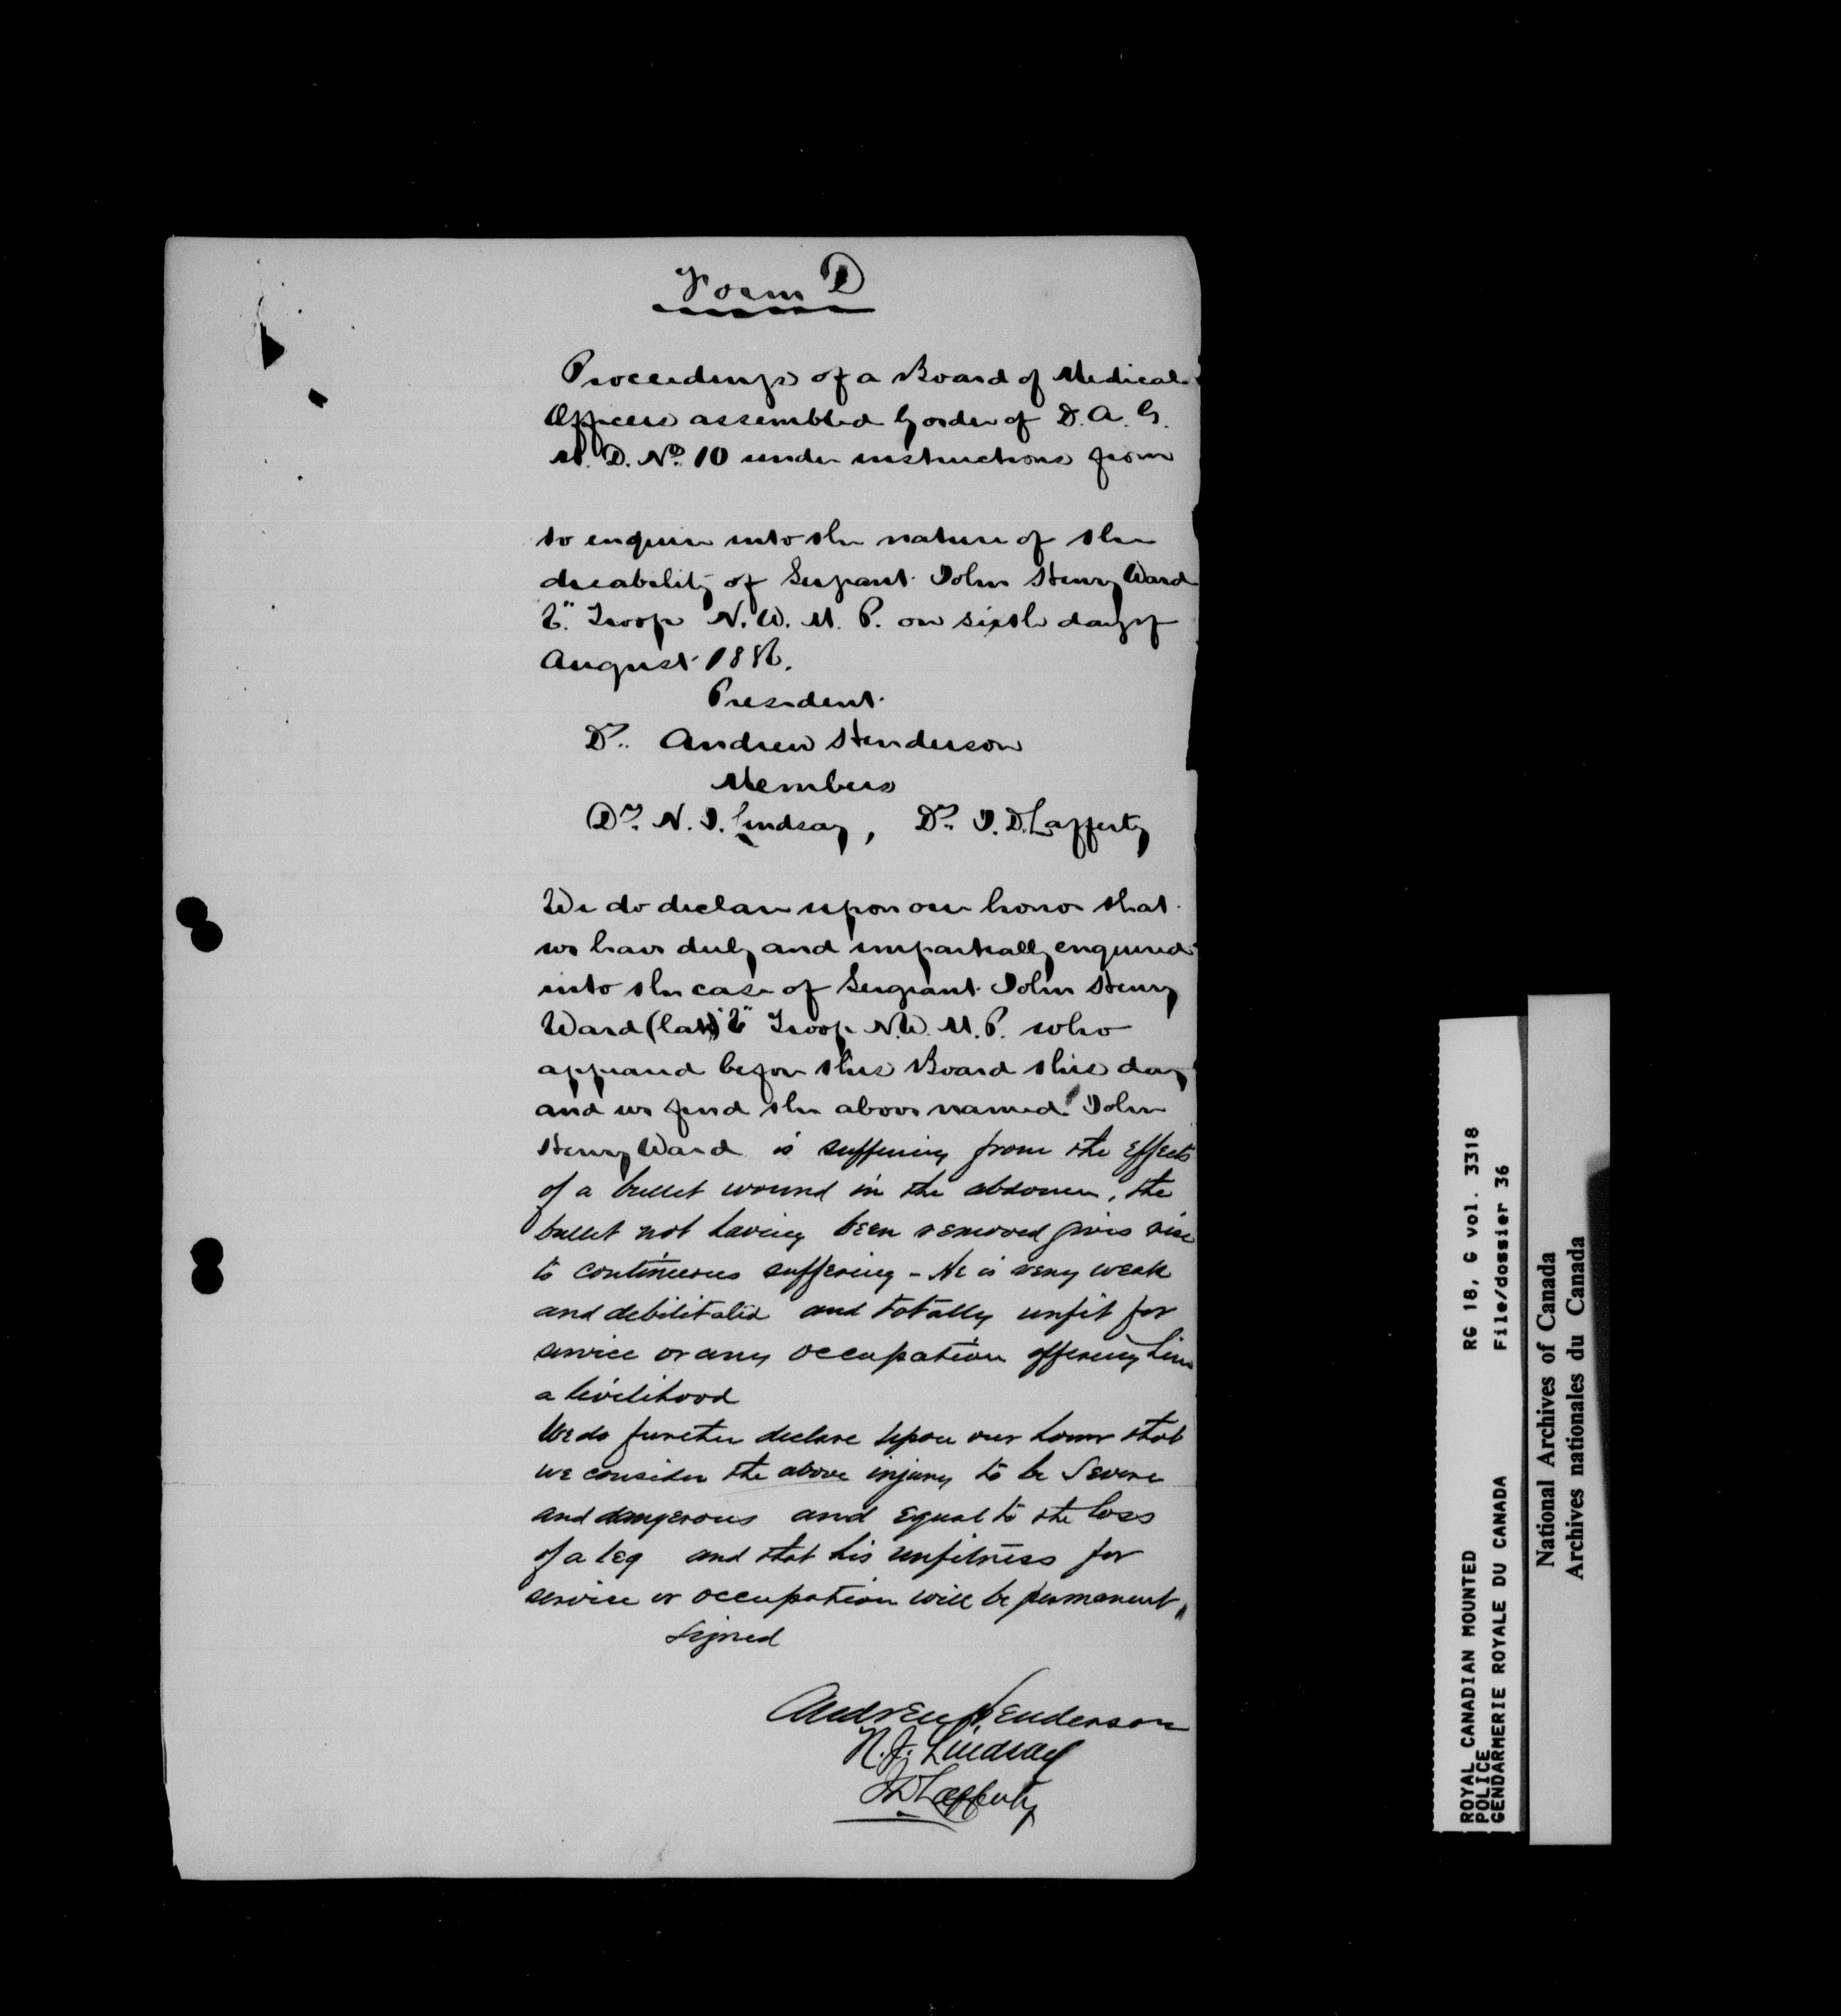 Form D
Proceedings of a Board of Medical
Officers assembled by order of D. A. G.
M. D. No. 10 under instructions from
to enquire into the nature of the
disability of Sergeant John Henry Ward
Troop N. W. M. P. on sixth day of
August 1886.
President
Dr. Andrew Henderson
Members
Dr. N. J. Lindsay, Dr. J. D. Lafferty
We do declare upon our honor that
we have duly and impartially enquired
into the case of Sergeant John Henry
Ward (late) Troop N. W. M. P. who
appeared before this Board this day
and we find the above named John
Henry Ward is suffering from the effects
of a bullet wound in the abdomen, the
bullet not having been removed gives rise
to continuous suffering - He is very weak
and debilitated and totally unfit for
service or any occupation offering him
a livelihood
We do further declare upon our honor that
we consider the above injury to be severe
and dangerous and equal to the loss
of a leg and that his unfitness for
service or occupation will be permanent,
Signed
Andrew Henderson
N. J. Lindsay
J D Lafferty
ROYAL CANADIAN MOUNTED RG 18, G vol. 3318
POLICE
GENDARMERIE ROYALE DU CANADA File/dossier 36
National Archives of Canada
Archives nationales du Canada